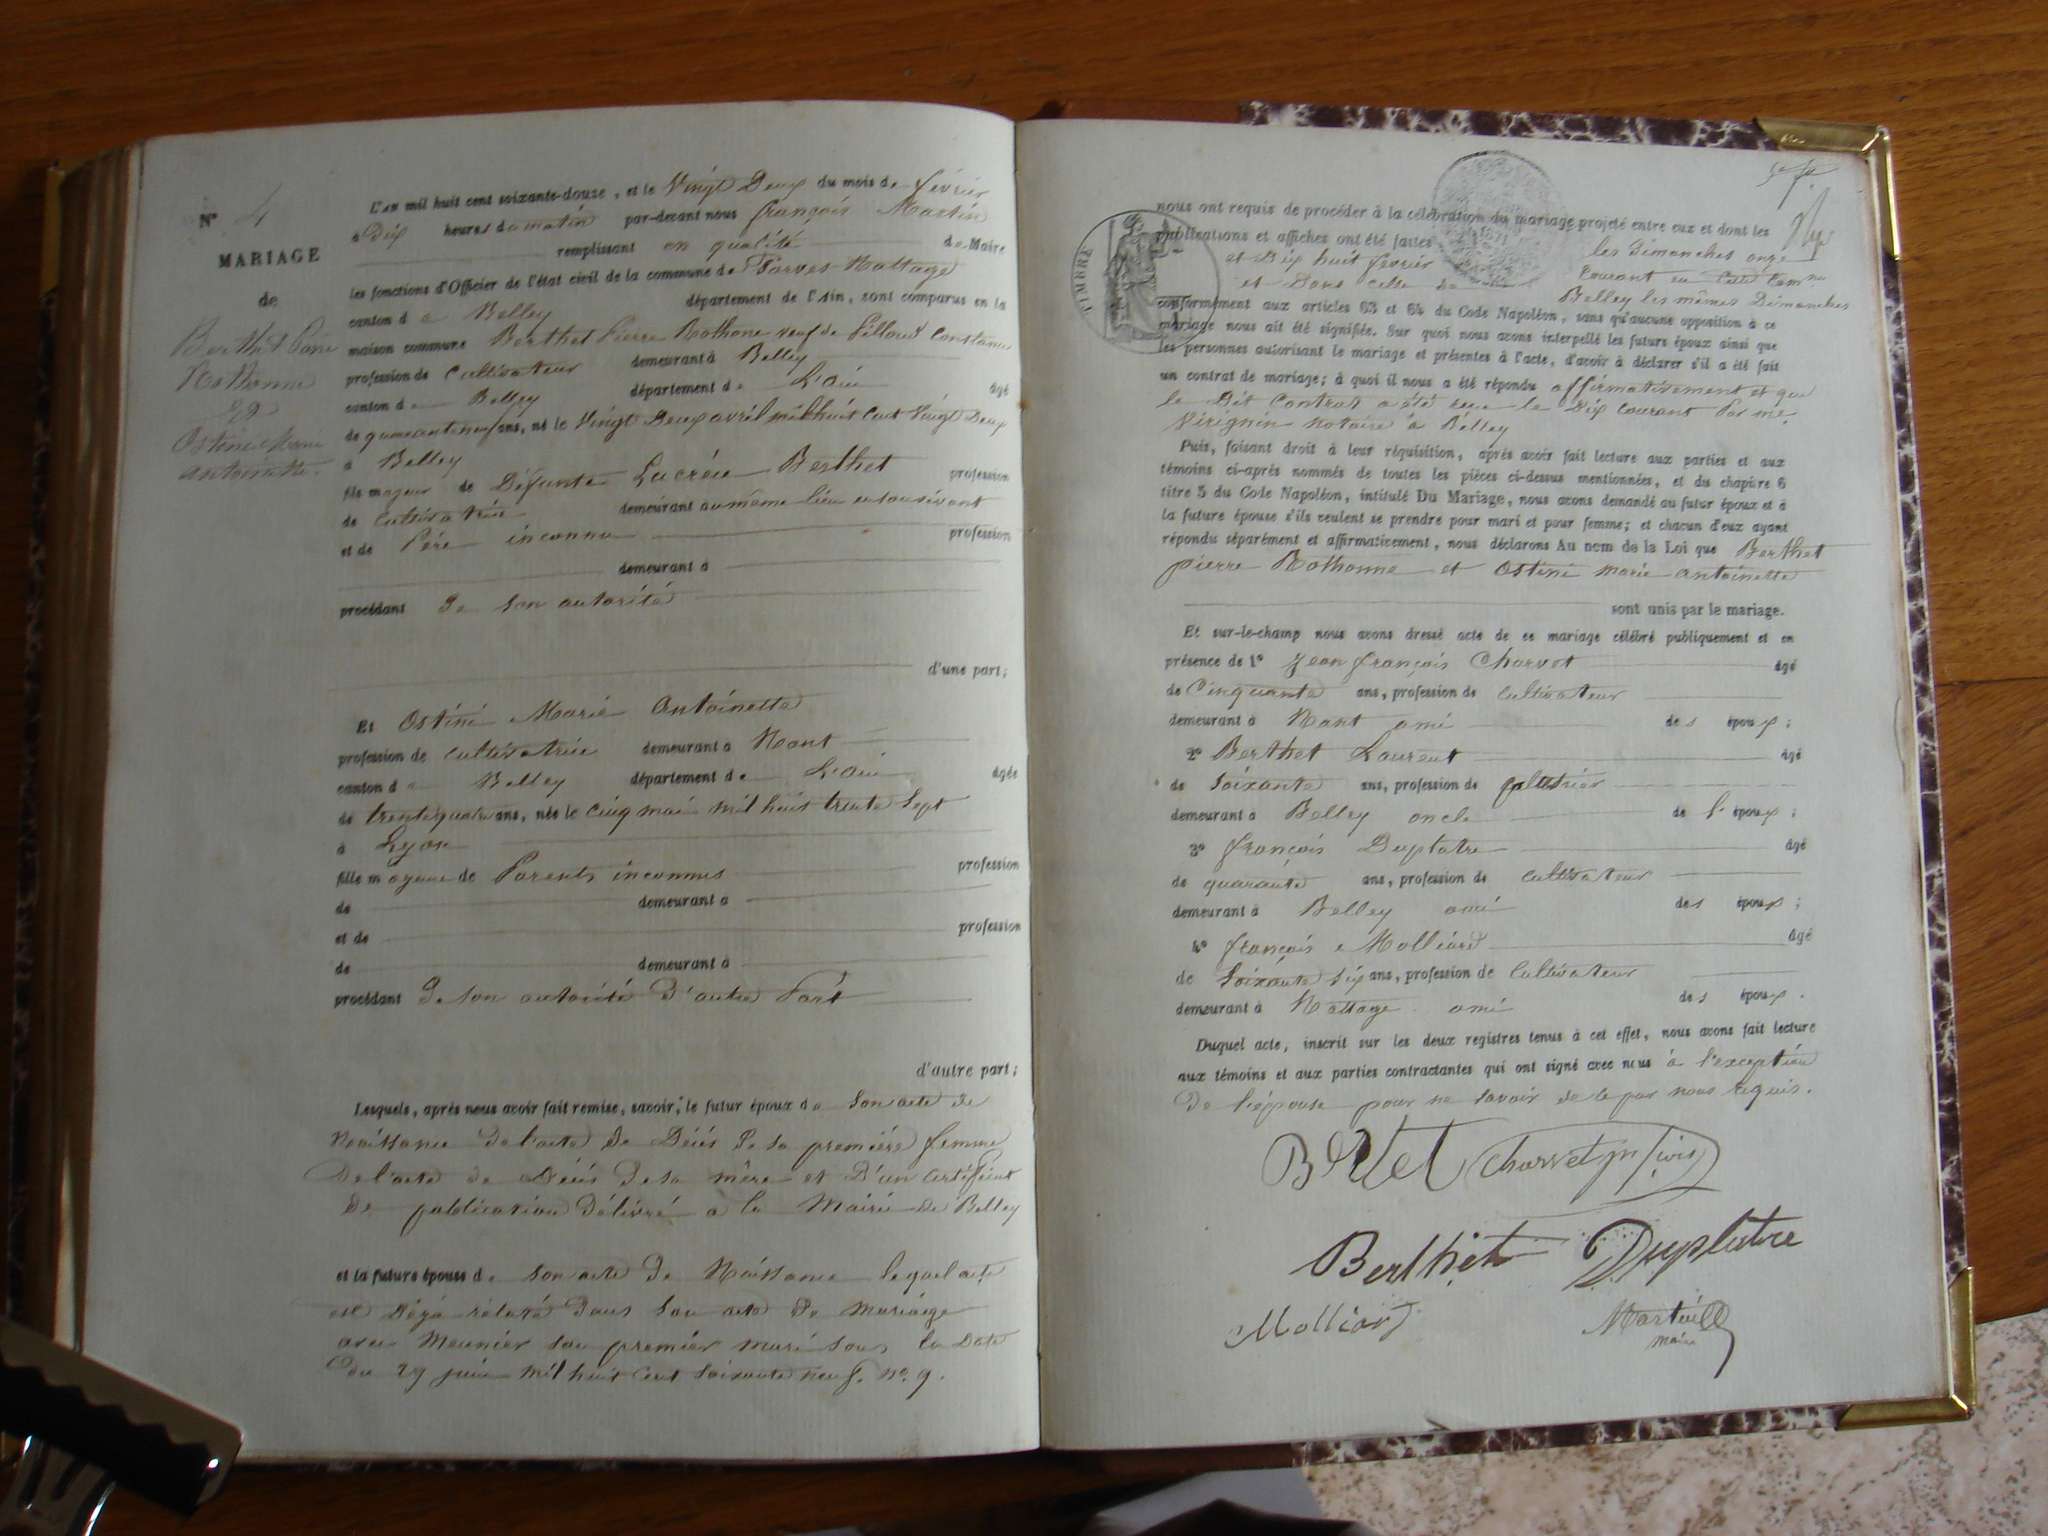 N° 4
MARIAGE
de
Berthet Pierre
Rothonne
et
Ostini Marie
antoinette.
L'an mil huit cent soixante-douze, et le Vingt Deux du mois de février
à Dix heures du matin par-devant nous françois Martin
remplissant en qualité de Maire
les fonctions d'Officier de l'état civil de la commune de Parves-Nattage
canton de Belley département de l'Ain, sont comparus en la
maison commune Berthet Pierre Rothonne veuf de Constance
profession de Cultivateur demeurant à Belley
canton de Belley département de L'ain âgé
de quarante neuf ans, né le Vingt Deux avril mil huit cent Vingt Deux
à Belley
fils majeur de Défunte Lucrèce Berthet profession
de Cultivatrice demeurant au même lieu en son vivant
et de Père inconnu profession
demeurant à
procédant de son autorité
d'une part;
Et Ostini Marie Antoinette
profession de cultivatrice demeurant à Nant
canton de Belley département de L'ain âgée
de trente quatre ans, née le cinq mai mil huit trente sept
à Lyon
fille majeure de Parents inconnus profession
de demeurant à
et de profession
de demeurant à
procédant de son autorité d'autre Part
d'autre part;
Lesquels, après nous avoir fait remise, savoir, le futur époux de son acte de
Naissance de l'acte de Décès de sa première femme
de l'acte de Décès de sa mère et d'un certificat
de publication délivré à la Mairie de Belley
et la future épouse de son acte de Naissance lequel acte
est déjà relaté dans son acte de mariage
avec Meunier son premier mari sous la date
du 29 juin mil huit cent soixante neuf. n° 9.
TIMBRE
nous ont requis de procéder à la célébration du mariage projeté entre eux et dont les
publications et affiches ont été faites les Dimanches onze
et Dix huit février courant en cette Comne
et dans celle de Belley les mêmes Dimanches
conformément aux articles 63 et 64 du Code Napoléon, sans qu'aucune opposition à ce
mariage nous ait été signifiée. Sur quoi nous avons interpellé les futurs époux ainsi que
les personnes autorisant le mariage et présentes à l'acte, d'avoir à déclarer s'il a été fait
un contrat de mariage; à quoi il nous a été répondu affirmativement et que
le Dit Contrat a été reçu le Dix courant Par me
Vérignin notaire à Belley
Puis, faisant droit à leur réquisition, après avoir fait lecture aux parties et aux
témoins ci-après nommés de toutes les pièces ci-dessus mentionnées, et du chapitre 6
titre 5 du Code Napoléon, intitulé Du Mariage, nous avons demandé au futur époux et à
la future épouse s'ils veulent se prendre pour mari et pour femme; et chacun d'eux ayant
répondu séparément et affirmativement, nous déclarons Au nom de la Loi que Berthet
pierre Rothonne et Ostini marie antoinette
sont unis par le mariage.
Et sur-le-champ nous avons dressé acte de ce mariage célébré publiquement et en
présence de 1° Jean françois Charvet âgé
de Cinquante ans, profession de cultivateur
demeurant à Nant ami des époux;
2° Berthet Laurent âgé
de Soixante ans, profession de
demeurant à Belley oncle de l'époux;
3° françois Duplatre âgé
de quarante ans, profession de cultivateur
demeurant à Belley ami des époux;
4° françois Molliard âgé
de Soixante six ans, profession de Cultivateur
demeurant à Nattage ami des époux.
Duquel acte, inscrit sur les deux registres tenus à cet effet, nous avons fait lecture
aux témoins et aux parties contractantes qui ont signé avec nous à l'exception
de l'épouse pour ne savoir de ce par nous requis.
Bertet Charvet jn fçois
Berthet Duplatre
Molliard Martin
maire